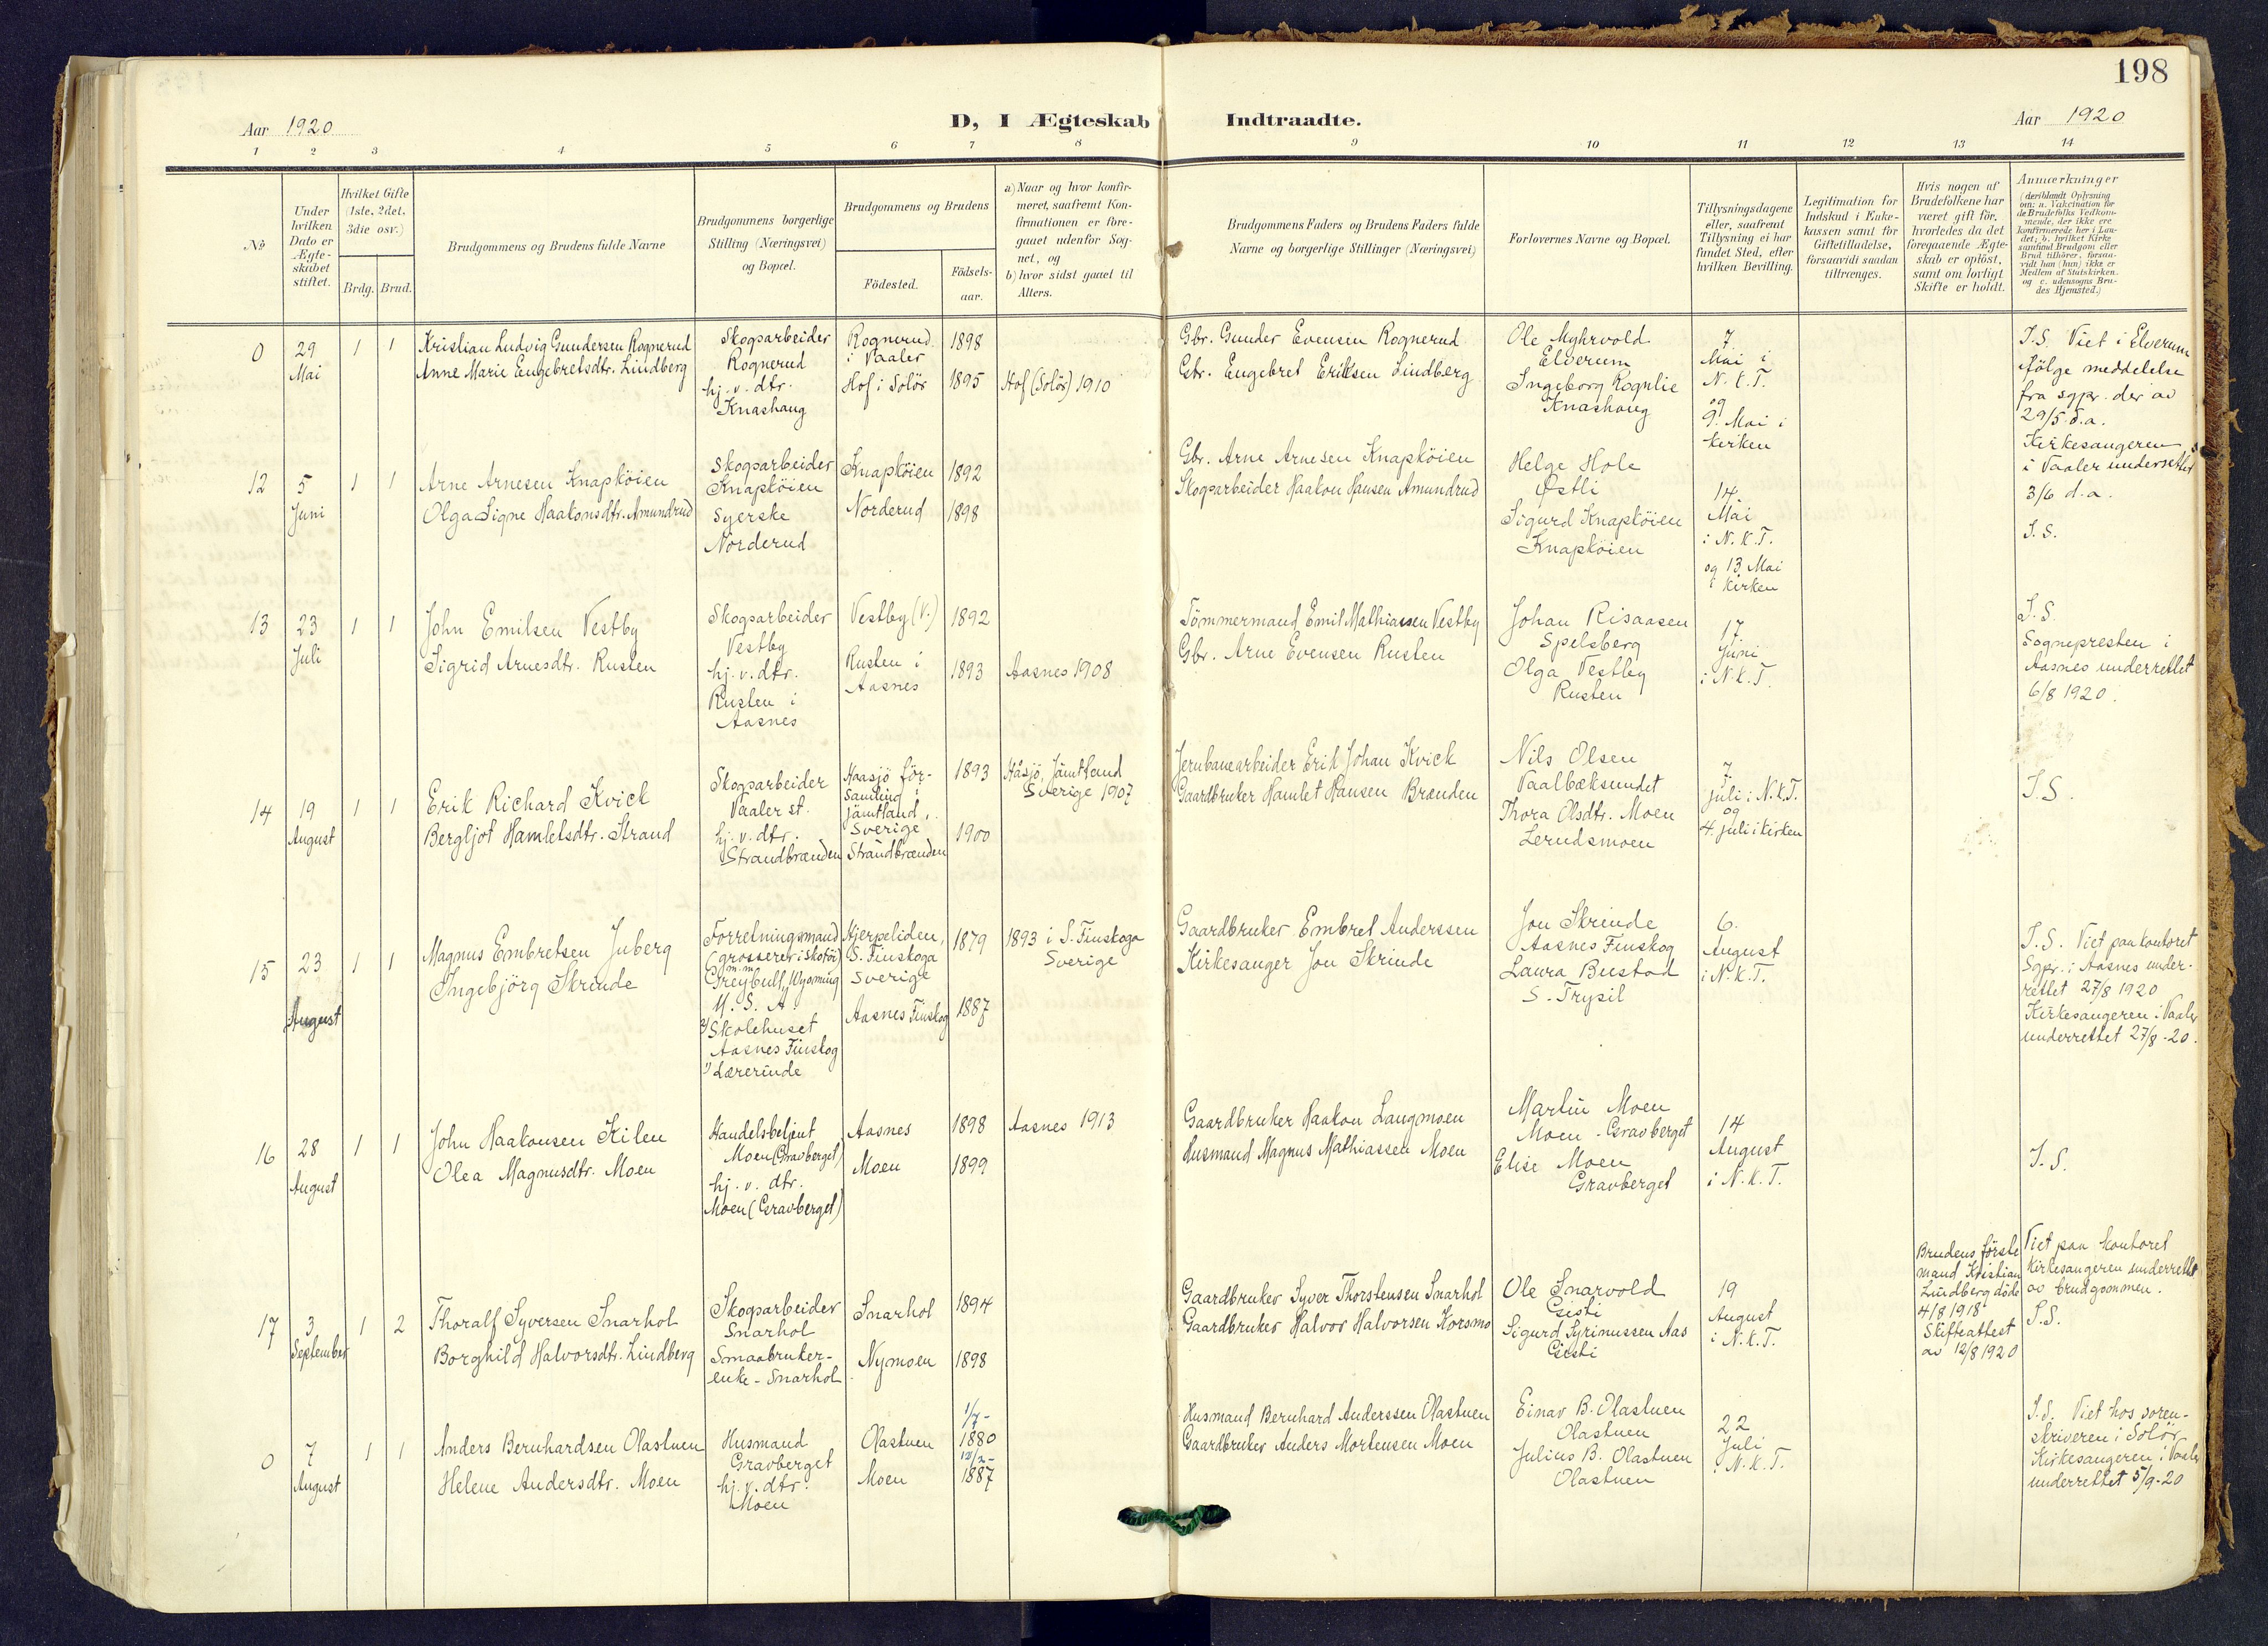 198
Aar 1920
D, I Ægteskab Indtraadte.
Aar 1920
1 2 3 4 5 6 7 8 9 10 11 12 13 14
No
Under
hvilken
Dato er
Ægte-
skabet
stiftet.
Hvilket Gifte
(1ste, 2det,
3die osv.)
Brdg. Brud.
Brudgommens og Brudens fulde Navne
Brudgommens borgerlige
Stilling (Næringsvei)
og Bopæl.
Brudgommens og Brudens
Födested.
Födsels-
aar.
a) Naar og hvor konfir-
meret, saafremt Kon-
firmationen er fore-
gaaet udenfor Sog-
net, og
b) hvor sidst gaaet til
Alters.
Brudgommens Faders og Brudens Faders fulde
Navne og borgerlige Stillinger (Næringsvei)
Forlovernes Navne og Bopæl.
Tillysningsdagene
eller, saafremt
Tillysning ei har
fundet Sted, efter
hvilken Bevilling.
Legitimation for
Indskud i Enke-
kassen samt for
Giftetilladelse,
forsaavidt saadan
tiltrænges.
Hvis nogen af
Brudefolkene har
været gift för,
hvorledes da det
foregaaende Ægte-
skab er oplöst,
samt om lovligt
Skifte er holdt.
Anmærkninger
(deriblandt Oplysning
om: a. Vakcination for
de Brudefolks Vedkom-
mende, der ikke ere
konfirmerede her i Lan-
det; b. hvilket Kirke
samfund Brudgom eller
Brud tilhörer, forsaa-
vidt han (hun) ikke er
Medlem af Statskirken.
og c. udensogns Bru-
des Hjemsted.)
0
29
Mai
1 1
Kristian Ludvig Gundersen Rognerud
Anne Marie Engebretsdtr. Lindberg
Skogsarbeider
Rognerud
hj. v. dtr.
Knashaug
Rognerud
i Vaaler
Hof i Solör
1898
1895
Hof (Solör) 1910
Gbr. Gunder Evensen Rognerud
Gbr. Engebret Eriksen Lindberg
Ole Myhrvold
Elverum
Ingeborg Rognlie
Knashaug
7.
Mai i
N. K. T.
og
9. Mai i
kirken
I.S. Viet i Elverum
ifölge meddelelse
fra sgpr. der av
29/5 d.a.
Kirkesangeren
i Vaaler underrettet
3/6 d.a.
12
5
Juni
1 1
Arne Arnesen Knapköien
Olga Signe Haakonsdtr. Amundrud
Skogsarbeider
Knapköien
Syerske
Norderud
Knapköien
Norderud
1892
1898
Gbr. Arne Arnesen Knapköien
Skogsarbeider Haakon Hansen Amundrud
Helge Hole
Østli
Sigurd Knapköien
Knapköien
14
Mai
i N. K. T.
og 13 Mai
i kirken
I.S.
13
23
Juli
1 1
John Emilsen Vestby
Sigrid Arnesdtr. Rusten
Skogsarbeider
Vestby
hj. v. dtr.
Rusten i
Aasnes
Vestby (V.)
Rusten i
Aasnes
1892
1893
Aasnes 1908
Tömmermand Emil Mathiassen Vestby
Gbr. Arne Evensen Rusten
Johan Risaasen
Spelsberg
Olga Vestby
Rusten
17
Juni
i N. K. T.
I.S.
Sognepresten i
Aasnes underrettet
6/8 1920.
14
19
August
1 1
Erik Richard Kvick
Bergljot Hamletsdtr. Strand
Skogsarbeider
Vaaler st.
hj. v. dtr.
Strandbrænden
Haasjö för-
samling i
Jämtland,
Sverige
Strandbrænden
1893
1900
Håsjö, Jämtland
Sverige 1907
Jernbanearbeider Erik Johan Kvick
Gaardbruker Hamlet Hansen Brænden
Nils Olsen
Vaalbæksundet
Thora Olsdtr. Moen
Lerudsmoen
7.
juli i N.K.T.
og
4. juli i kirken
I.S.
15
23
August
1 1
Magnus Embretsen Juberg
Ingebjörg Skrinde
Forretningsmand
(grosserer i skotöi)
m.m.
Greybull, Wyoming
U. S. A.
2) Skolehuset
Aasnes Finskog
1) Lærerinde
Hjerpeliden,
S. Finskoga
Sverige
Aasnes Finskog
1879
1887
1893 i S. Finskoga
Sverige
Gaardbruker Embret Anderssen
Kirkesanger Jon Skrinde
Jon Skrinde
Aasnes Finskog
Laura Bustad
S. Trysil
6.
August
i N. K. T.
I.S. Viet paa kontoret
Sgpr. i Aasnes under-
rettet 27/8 1920
Kirkesangeren i Vaaler
underrettet 27/8 -20.
16
28
August
1 1
John Haakonsen Kilen
Olea Magnusdtr. Moen
Handelsbetjent
Moen (Gravberget)
hj. v. dtr.
Moen (Gravberget)
Aasnes
Moen
1898
1899
Aasnes 1913
Gaardbruker Haakon Langmoen
Husmand Magnus Mathiassen Moen
Martin Moen
Moen - Gravberget
Elise Moen
Gravberget
14
August
i N. K. T.
I.S.
17
3
September
1 2
Thoralf Syversen Snarhol
Borghild Halvorsdtr. Lindberg
Skogsarbeider
Snarhol
Smaabruker-
enke - Snarhol
Snarhol
Nymoen
1894
1898
Gaardbruker Syver Thorstensen Snarhol
Gaardbruker Halvor Halvorsen Korsmo
Ole Snarvold
Sigurd Syrinussen Aas
19
August
i N. K. T.
Brudens förste
mand Kristian
Lindberg döde
4/8 1918
Skifteattest
av 12/8 1920
Viet paa kontoret
Kirkesangeren underrettet
av brudgommen.
I.S.
0
7
August
1 1
Anders Bernhardsen Olastuen
Helene Andersdtr. Moen
Husmand
Gravberget
hj. v. dtr.
Moen
Olastuen
Moen
1/7 -
1880
12/2 -
1887
Husmand Bernhard Anderssen Olastuen
Gaardbruker Anders Mortensen Moen
Einar B. Olastuen
Olastuen
Julius B. Olastuen
Olastuen
22
Juli
i N. K. T.
I.S. Viet hos soren-
skriveren i Solör
Kirkesangeren i Vaaler
underrettet 5/9-20